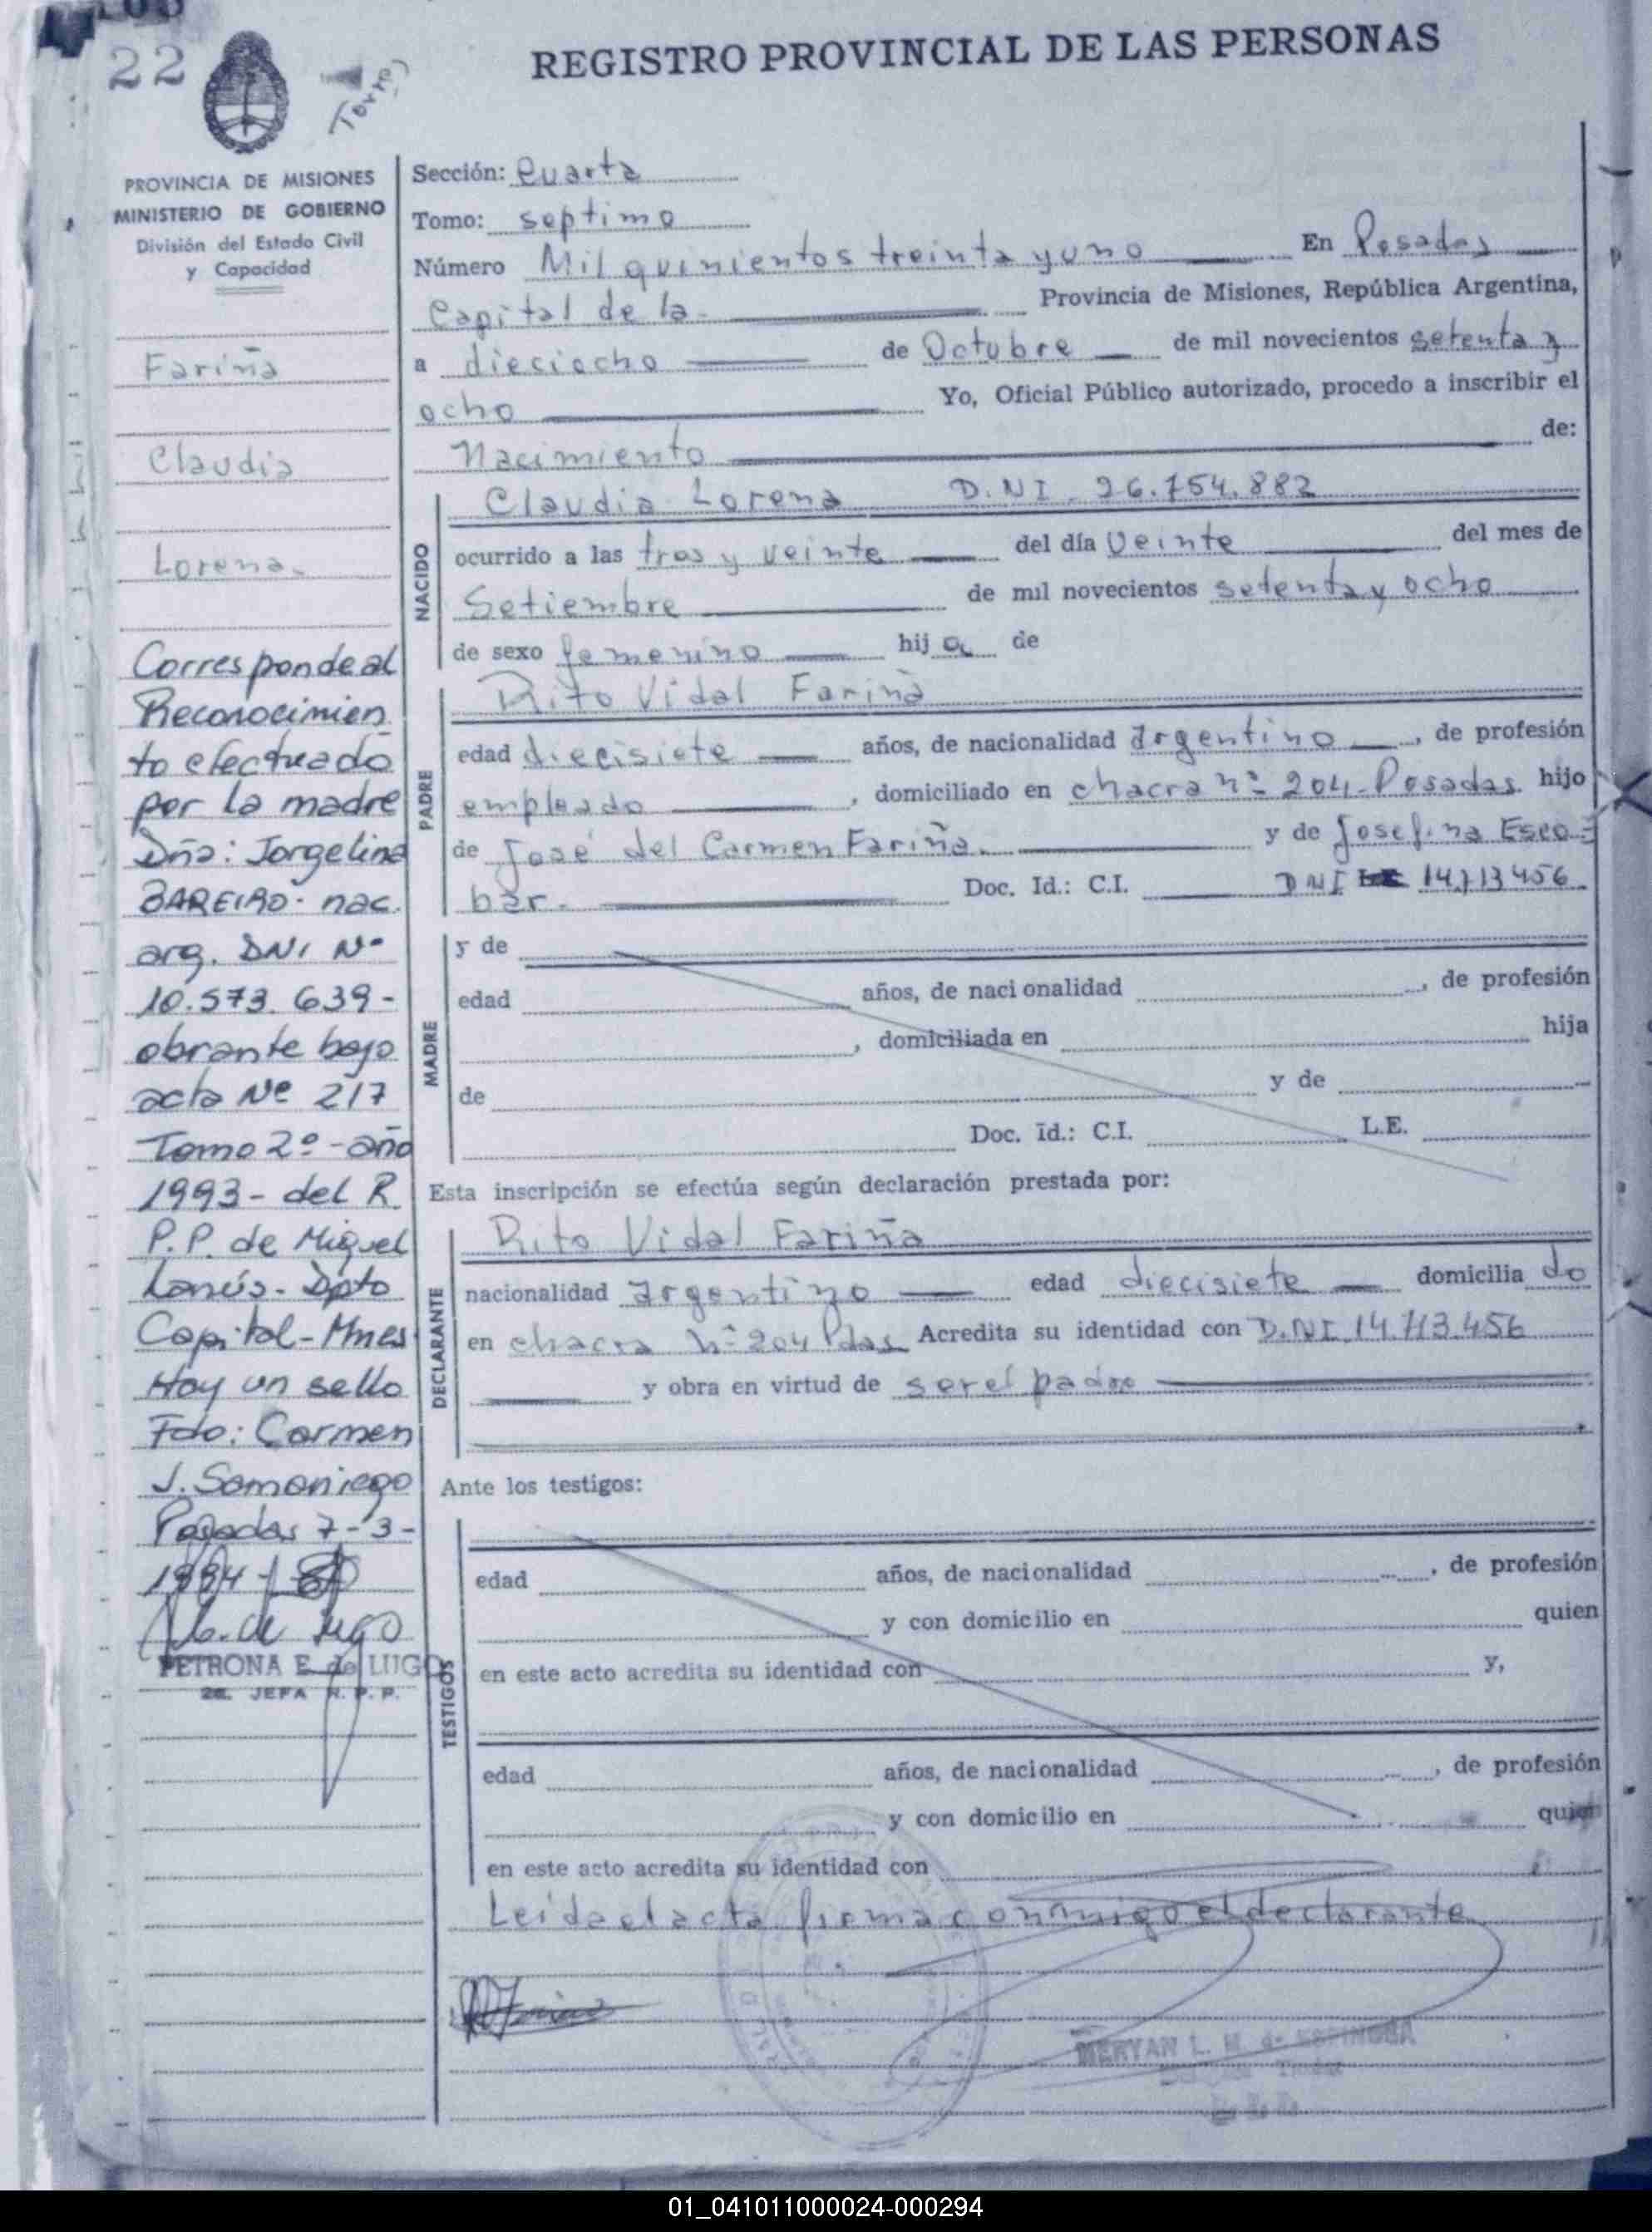 22
REGISTRO PROVINCIAL DE LAS PERSONAS
PROVINCIA DE MISIONES
MINISTERIO DE GOBIERNO
División del Estado Civil
y Capacidad
Sección: Cuarta
Tomo: septimo
Número Mil quinientos treinta y uno En Posadas
Capital de la Provincia de Misiones, República Argentina,
a dieciocho de Octubre de mil novecientos setenta y
ocho Yo, Oficial Público autorizado, procedo a inscribir el
Nacimiento de:
NACIDO
Claudia Lorena D.N.I. 26.754.882
ocurrido a las tres y veinte del día Veinte del mes de
Setiembre de mil novecientos setenta y ocho
de sexo femenino hija de
PADRE
Rito Vidal Fariña
edad diecisiete años, de nacionalidad argentino, de profesión
empleado, domiciliado en chacra nº 204-Posadas hijo
de José del Carmen Fariña. y de Josefina Esco-
bar. Doc. Id.: C.I. DNI 14713456
MADRE
y de
edad años, de nacionalidad , de profesión
, domiciliada en hija
de y de
Doc. Id.: C.I. L.E.
Esta inscripción se efectúa según declaración prestada por:
DECLARANTE
Rito Vidal Fariña
nacionalidad argentino edad diecisiete domiciliado
en chacra nº 204 Pdas Acredita su identidad con D.N.I. 14.713.456
y obra en virtud de ser el padre
Ante los testigos:
TESTIGOS
edad años, de nacionalidad , de profesión
y con domicilio en quien
en este acto acredita su identidad con y,
edad años, de nacionalidad , de profesión
y con domicilio en quien
en este acto acredita su identidad con
Leida el acta firma conmigo el declarante
MERYAN L. M. de ESPINOSA
Fariña
Claudia
Lorena.
Corresponde al
Reconocimien
to efectuado
por la madre
Dña: Jorgelina
BAREIRO- nac.
arg. DNI Nº
10.573.639-
obrante bajo
acta Nº 217
Tomo 2º - año
1993- del R.
P.P. de Miguel
Lanús- Dpto
Capital-Mnes
Hay un sello
Fdo: Carmen
J. Samaniego
Posadas 7-3-
1994-
PETRONA E. de LUGO
2a. JEFA R.P.P.
01_041011000024-000294